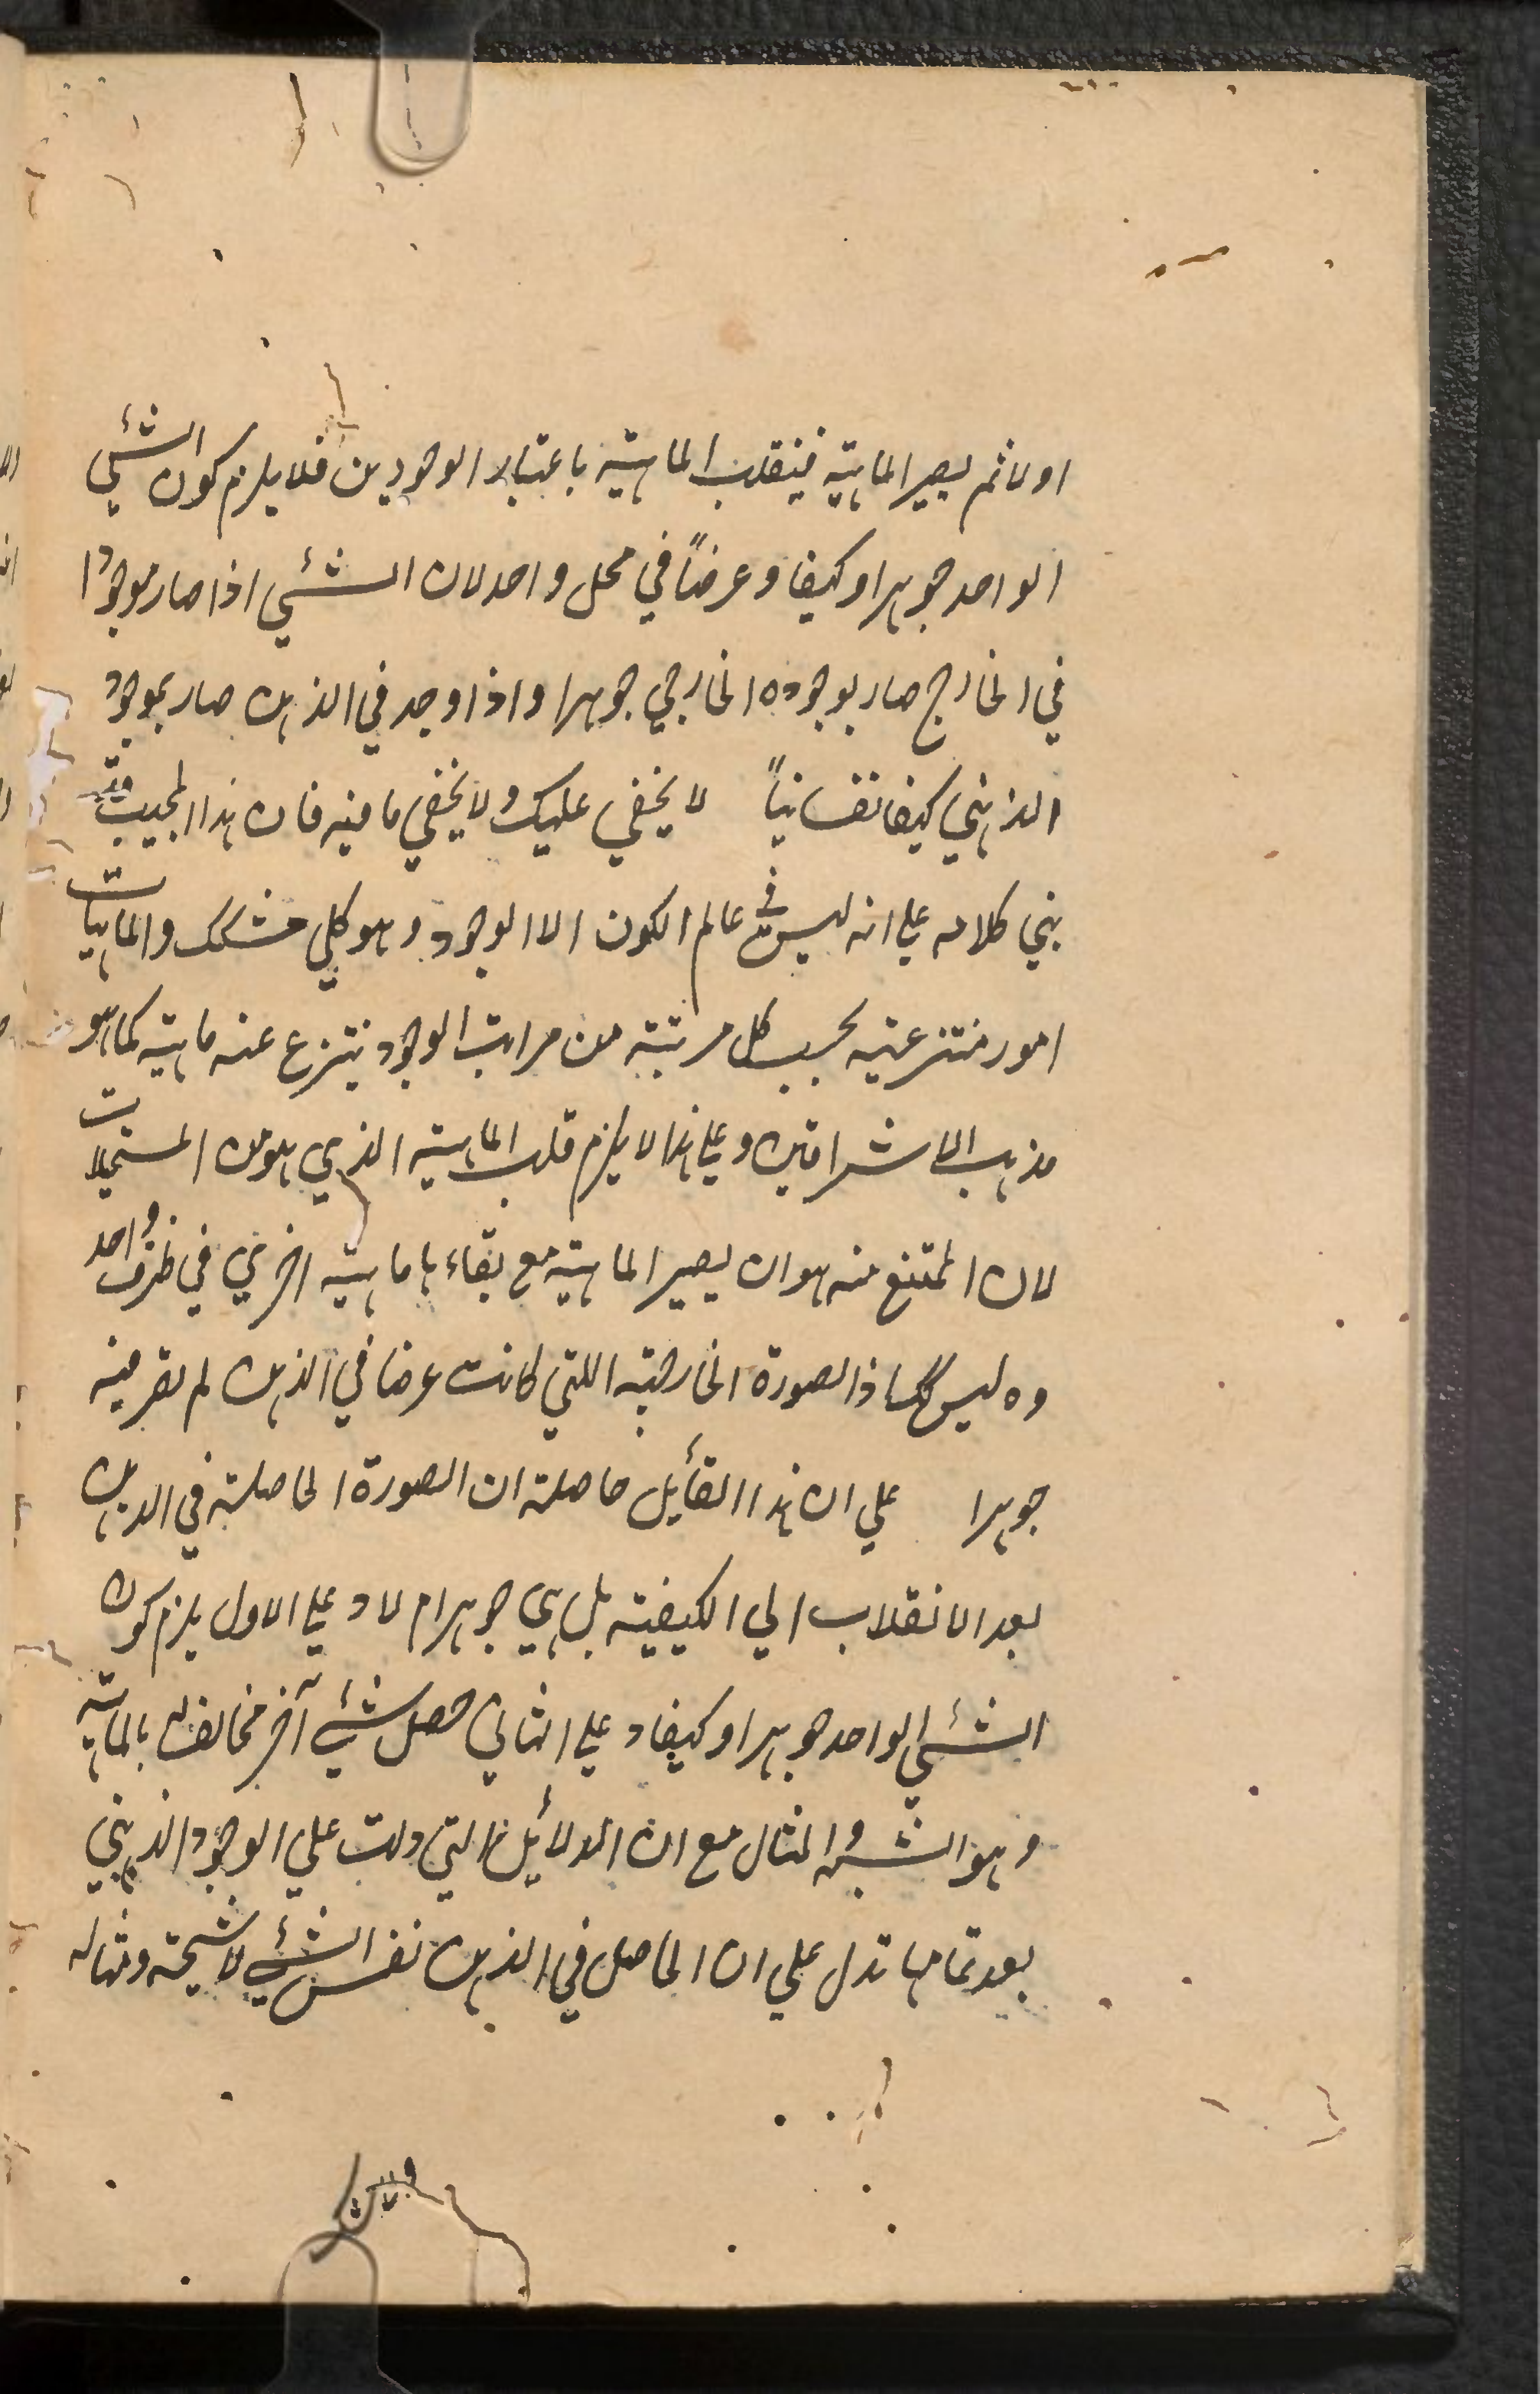 اولا ثم يصير الماهية فينقلب الماهية باعتبار الوجودين فلا يلزم كون الشئي
الواحد جوهرا وكيفا وعرضاً في محل واحد لان الشئي اذا صار موجودا
في الخارج صار بوجوده الخارجي جوهرا واذا وجد في الذهن صار بموجود
الذهني كيفا نفسانياً لا يخفي عليك ولا يخفي ما فيه فان هذا المجيب
بني كلامه علي انه ليس في عالم الكون الا الوجود وهو كلي مشكك والماهيات
امور منتزعية بحسب كل مرتبة من مراتب الوجود ينتزع عنه ماهية كما هو
مذهب الاشراقين وعلي هذا لا يلزم قلب الماهية الذي هو من المستحيلات
لان الممتنع منه هو ان يصير الماهية مع بقاءها ماهية اخري في ظرف واحد
وه ليس كك اذ الصورة الخارجية اللتي كانت عرضا في الذهن لم يقر فيه
جوهرا علي ان هذا القأيل حاصلة ان الصورة الحاصلة في الذهن
بعد الانقلاب الي الكيفية بل هي جوهر ام لا و علي الاول يلزم كون
الشئي الواحد جوهرا وكيفا و علي الثاني حصل شئي آخر مخالف له بالماهية
وهو الشبح والمثال مع ان الدلأيل التي دلت علي الوجود الذهني
بعد تمامها تدل علي ان الحاصل في الذهن نفس الشئي لا شبحة ومثاله